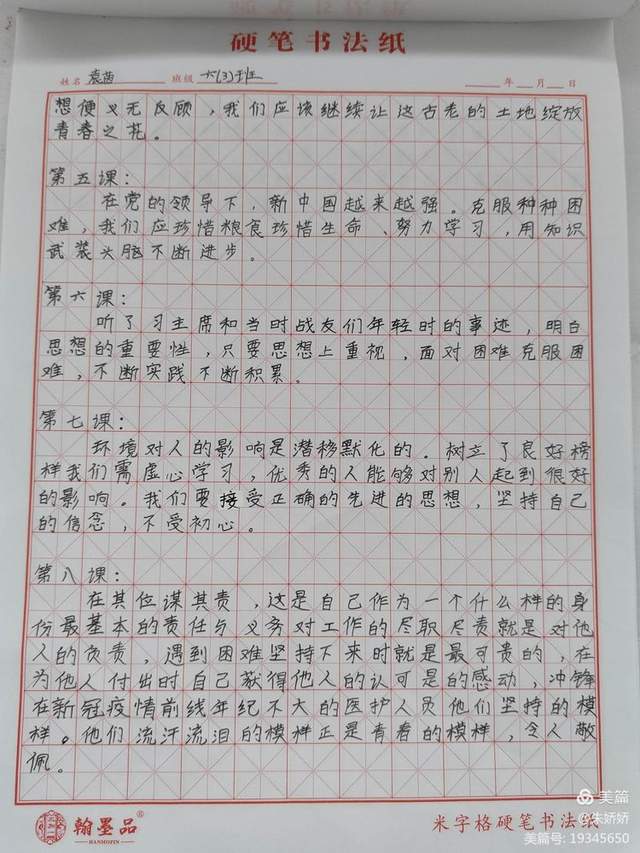 硬笔书法纸
姓名 袁茵 班级 六(3)班 年 月 日
想便义无反顾，我们应该继续让这古老的土地绽放
青春之花。
第五课：
在党的领导下，新中国越来越强。克服种种困
难，我们应珍惜粮食珍惜生命、努力学习，用知识
武装头脑不断进步。
第六课：
听了习主席和当时战友们年轻时的事迹，明白
思想的重要性，只要思想上重视，面对困难克服困
难，不断实践不断积累。
第七课：
环境对人的影响是潜移默化的。树立了良好榜
样我们需虚心学习，优秀的人能够对别人起到很好
的影响。我们要接受正确的先进的思想，坚持自己
的信念，不受初心。
第八课：
在其位谋其责，这是自己作为一个什么样的身
份最基本的责任与义务对工作的尽职尽责就是对他
人的负责，遇到困难坚持下来时就是最可贵的，在
为他人付出时自己获得他人的认可是的感动，冲锋
在新冠疫情前线年纪不大的医护人员他们坚持的模
样。他们流汗流泪的模样正是青春的模样，令人敬
佩。
翰墨品®
HANMOPIN
米字格硬笔书法纸
美篇
@朱娇娇
美篇号：19345650